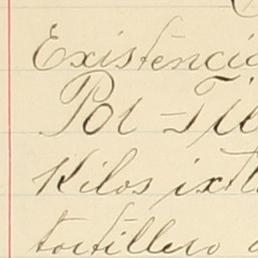 Existencia
Por Tie
Kilos ixtl
tortillero